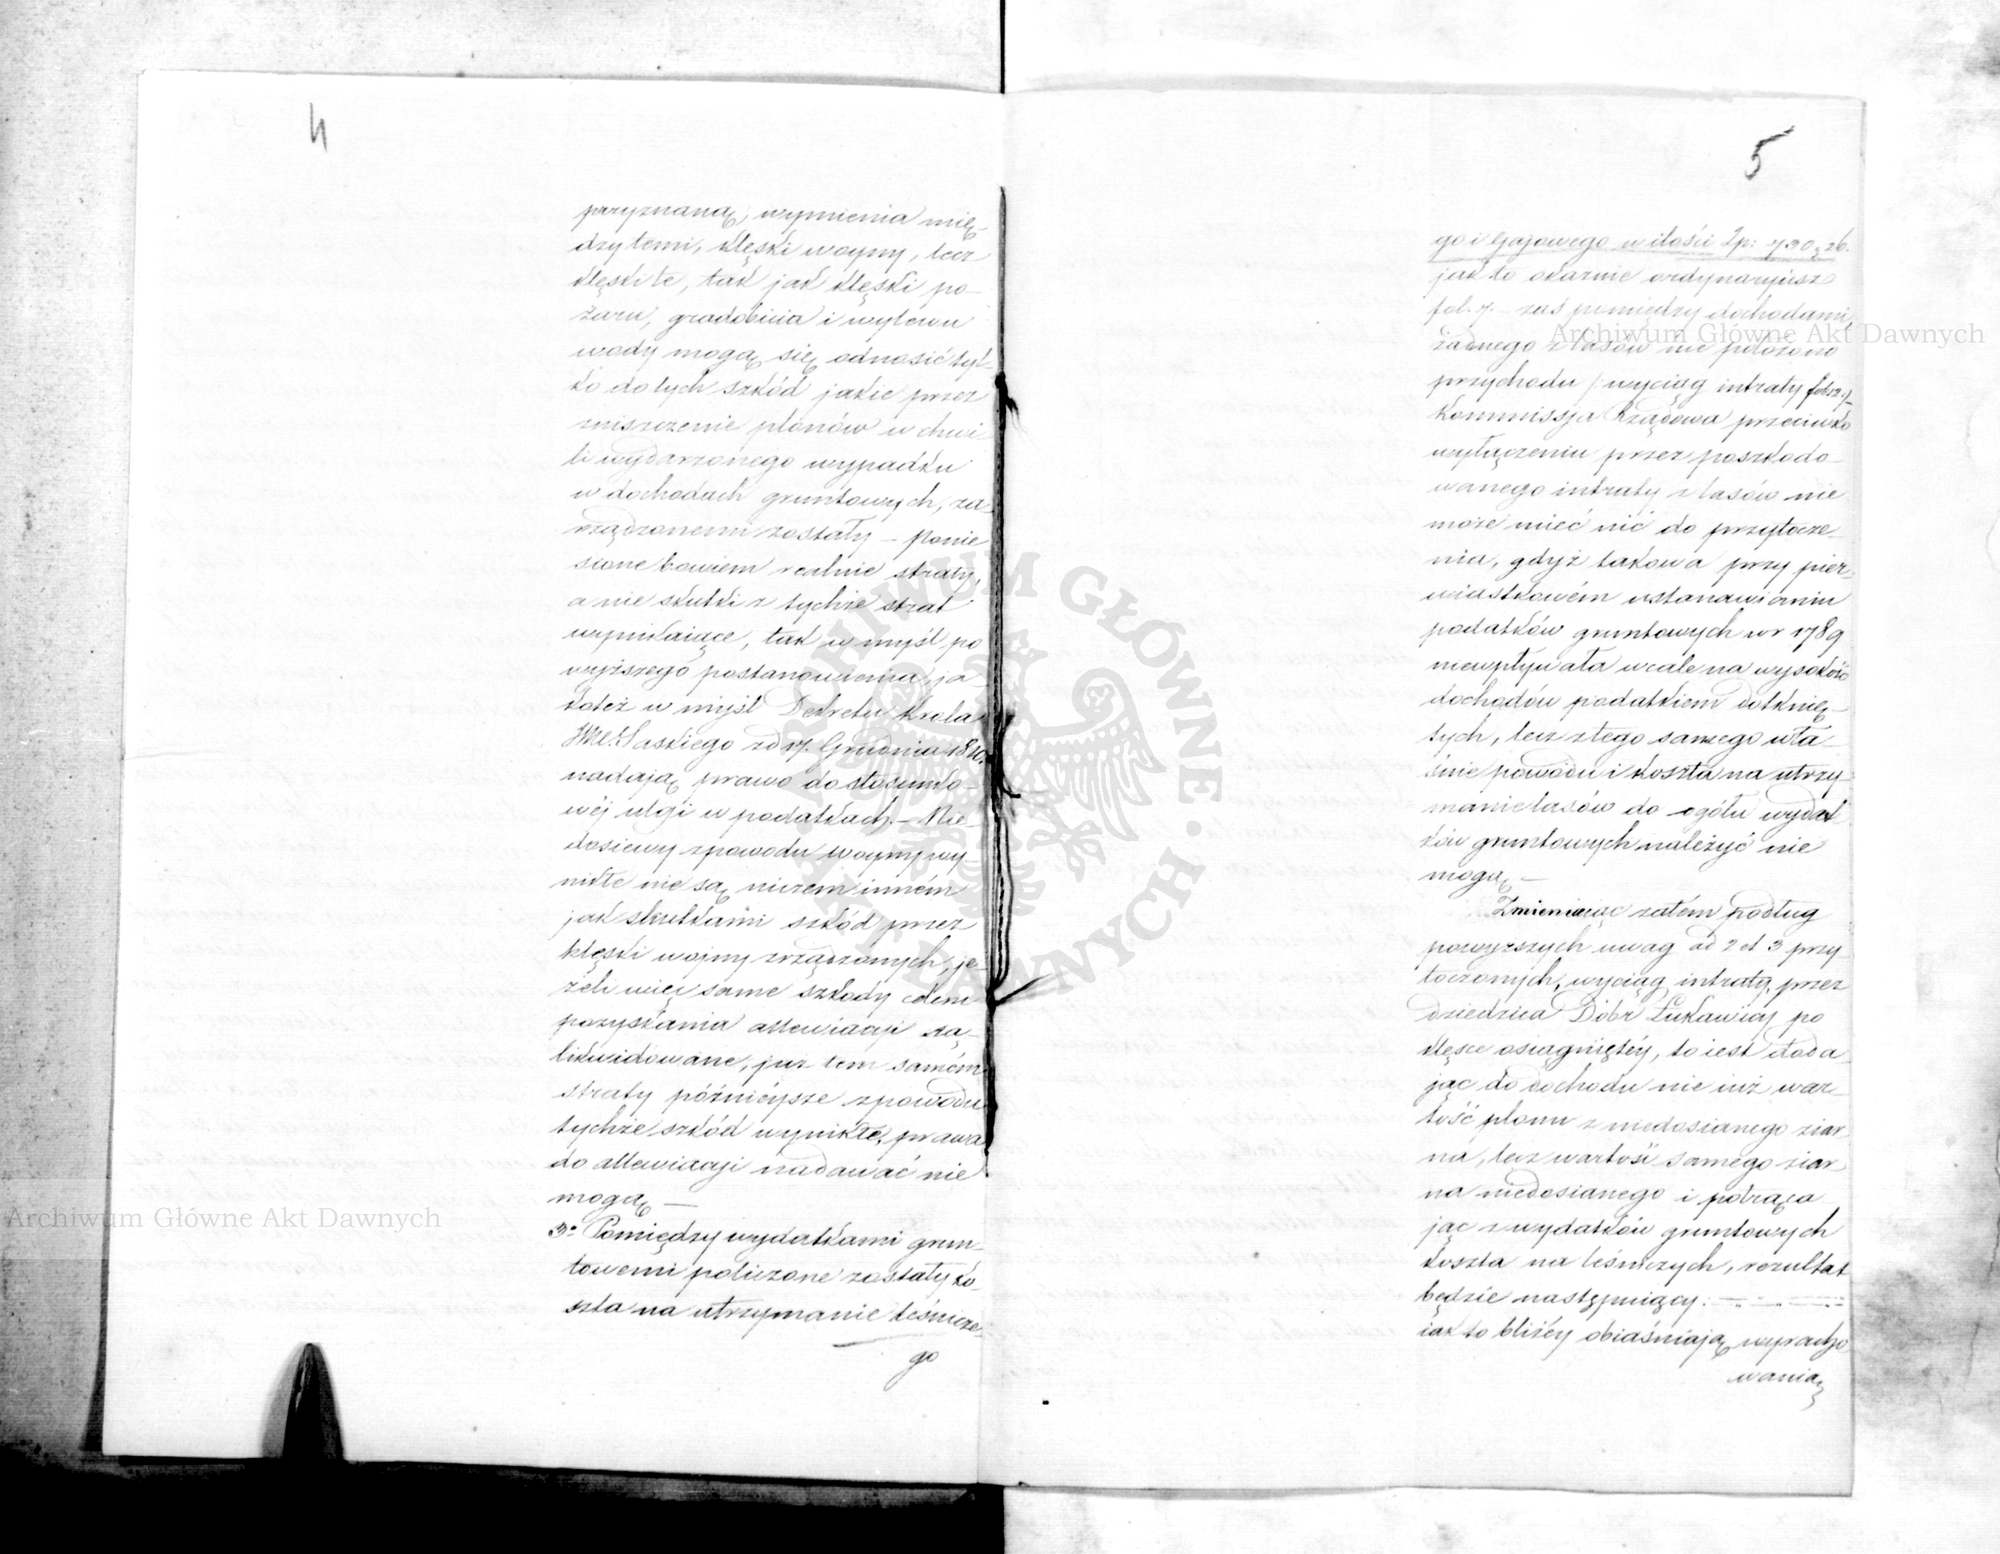 4
przyznaną, wymienia mię-
dzy temi, klęski woyny, lecz
klęski te, tak jak klęski po-
żaru, gradobicia i wylewu
wody mogą się odnosić tyl-
ko do tych szkód jakie przez
zniszczenie plonów w chwi-
li wydarzonego wypadku
w dochodach gruntowych, za-
rządzonemi zostały – Ponie
sione bowiem realnie straty,
a nie skutki z tychże strat
wynikaiące, tak w myśl po
wyższego postanowienia, ja
koteż w myśl Dekretu Krola
Saskiego zd 17. Grudnia 1810.
nadają prawo do stosunko-
wéj ulgi w podatkach. – Nie-
dosiewy z powodu woyny wy-
nikłe nie są niczem inném
jak skutkami szkód przez
klęski wojny zrządzonych, je-
żeli więc same szkody celem
pozyskania allewiacyi są
likwidowane, już tem samém
straty późnieysze z powodu
tychże szkód wynikłe, prawa
do allewiacyi nadawać nie
mogą —
3o Pomiędzy wydatkami grun-
towemi policzone zostały ko-
szta na utrzymanie leśnicze-
go
5
go i Gajowego w ilości Zp: 730, 26.
jak to okazuie ordynaryusz
fol. 7. – zaś pomiędzy dochodami,
żadnego z lasów nie położono
przychodu /: wyciąg intraty
Kommissja Rządowa przeciwko
wyłączeniu przez poszkodo-
wanego intraty z lasów nie
może mieć nić do przytocze-
nia, gdyż takowa przy pier-
wiastkowém ustanowieniu
podatków gruntowych w r 1789
niewpływała wcale na wysokość
dochodów podatkiem dotknię-
tych, lecz z tego samego wła-
śnie powodu i koszta na utrzy-
manie lasów do ogółu wydat
ków gruntowych należyć nie
mogą —
Zmieniaiąc zatém podług
powyższych uwag ad 2 et 3 przy-
toczonych, wyciąg intraty przez
dziedzica Dóbr Łukawicy po
klęsce osiągniętéy, to iest doda-
jąc do dochodu nie iuż war-
tość plonu z niedosianego ziar
na, lecz wartość samego ziar
na niedosianego i potrąca
jąc z wydatków gruntowych
koszta na leśniczych, rezultat
będzie następuiący: —
iak to bliżéy obiaśniają wyracho
wania,
Archiwum Główne Akt Dawnych
Archiwum Główne Akt Dawnych
ARCHIWUM GŁÓWNE · AKT DAWNYCH ·